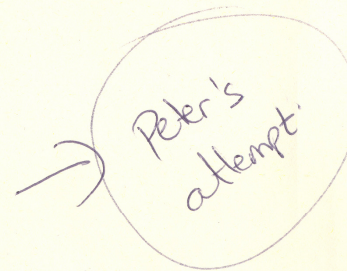 Peter's
attempt.